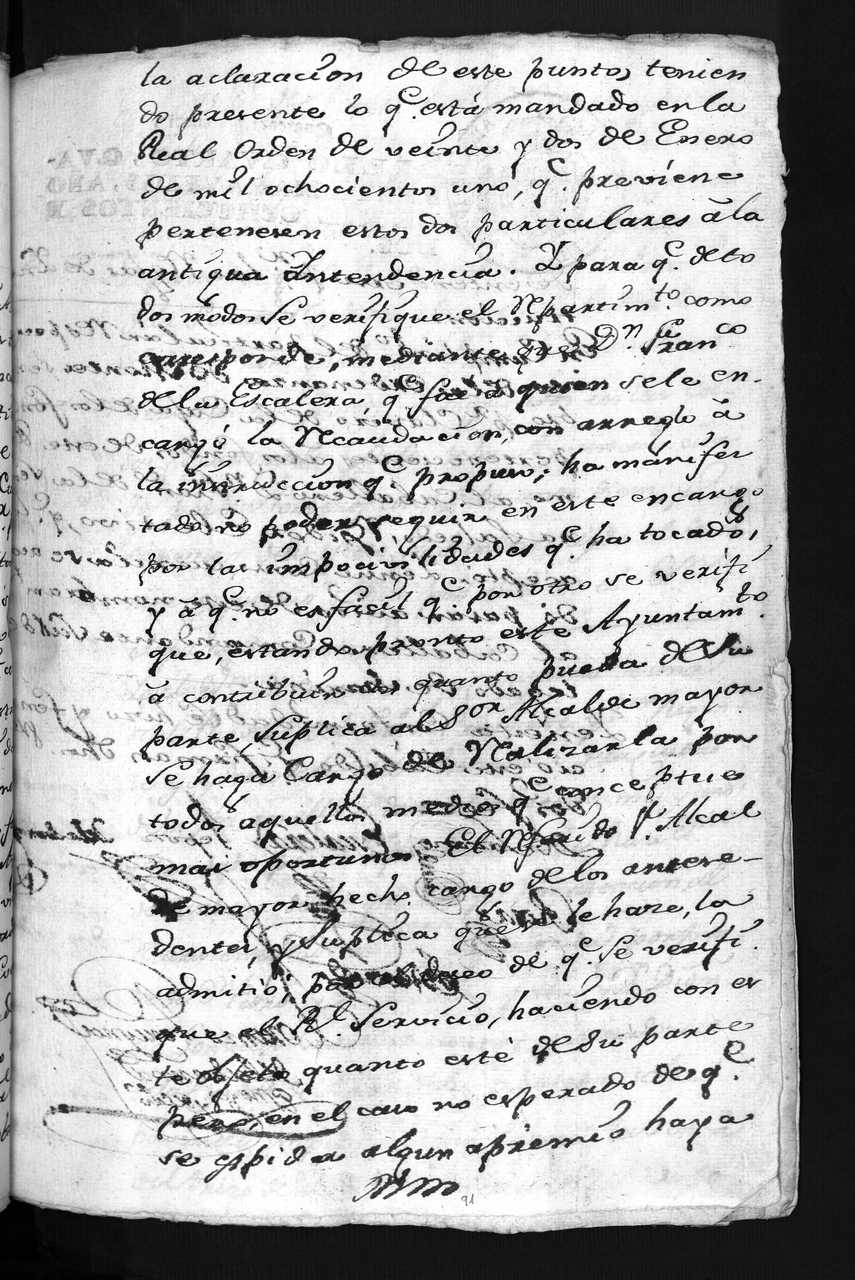 la aclaracion de este punto, tenien
do presente lo q.e está mandado en la
Real Orden de veinte y dos de Enero
de mil ochocientos uno, q.e previene
pertenesen estos dos particulares â la
antigua Yntendencia. Y para q.e de to
dos modos se verifique el Repartim.to como
corresponde, mediante â q.e D.n Fran.co
de la Escalera q.e fue â quien se le en-
cargó la Recaudacion, con arreglo â
la instruccion q.e propuso; ha manifes
tado no poder seguir en este encargo
por las imposivilidades q.e ha tocado,
y â q.e no es facil q.e por otro se verifi
que, estando pronto este Ayuntam.to
â contribuir con quanto pueda de su
parte, suplica al Sor Alcalde mayor
se haga Cargo de Realizarla por
todos aquellos medios q.e conceptue
mas oportunos. El Referido S.r Alcal
de mayor hecho cargo de los antese-
dentes, y suplica que se le hase, la
admitió, por el deseo de q.e se verifi
que el R.l Servicio, haciendo con es
te objeto quanto esté de su parte
pero, en el caso no esperado de q.e
se espida algun apremio haya
91